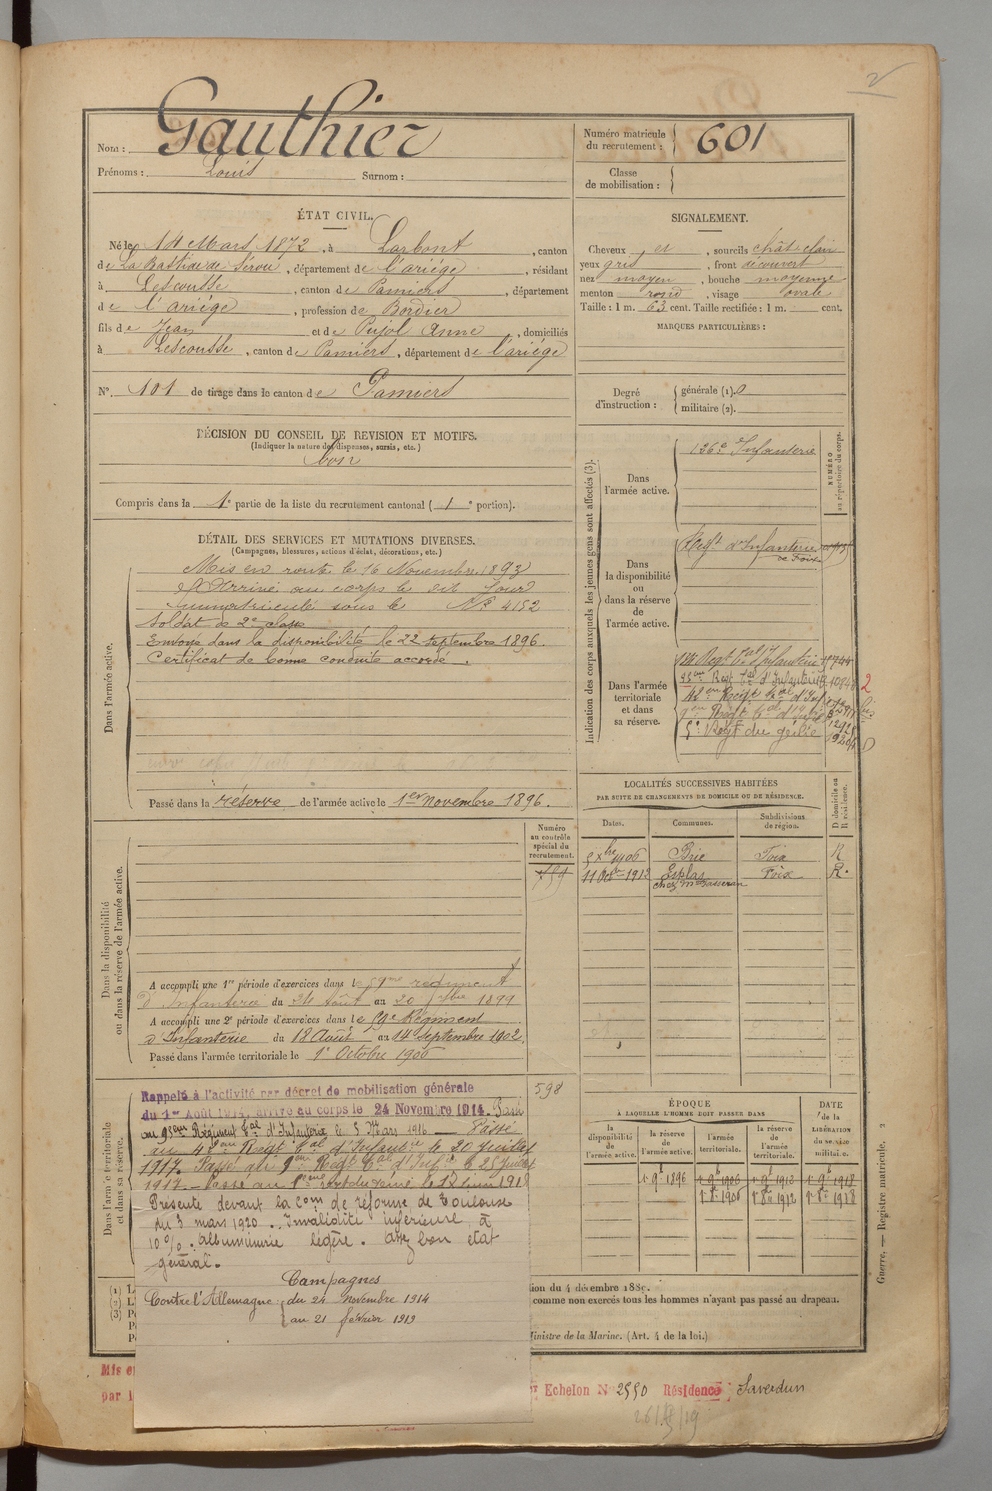 Gauthier
Nom :
Prénoms : Louis Surnom :
Numéro matricule du recrutement : 601
Classe de mobilisation :
ÉTAT CIVIL.
Né le 14 Mars 1872, à Larbont, canton
de La Bastide de Sérou, département de l'ariége, résidant
à Lescousse, canton de Pamiers, département
de l'ariége, profession de Bordier
fils de Jean et de Pujol Anne, domiciliés
à Lescousse, canton de Pamiers, département de l'ariége
N° 101 de tirage dans le canton de Pamiers
SIGNALEMENT.
Cheveux et, sourcils chât clair
yeux gris, front découvert
nez moyen, bouche moyenne
menton rond, visage ovale
Taille : 1 m. 63 cent. Taille rectifiée : 1 m. cent.
MARQUES PARTICULIÈRES :
Degré d'instruction : générale (1). 0
militaire (2).
DÉCISION DU CONSEIL DE REVISION ET MOTIFS.
(Indiquer la nature des dispenses, sursis, etc.)
bon
Compris dans la 1e partie de la liste du recrutement cantonal (1e portion).
DÉTAIL DES SERVICES ET MUTATIONS DIVERSES.
(Campagnes, blessures, actions d'éclat, décorations, etc.)
Dans l'armée active.
Mis en route le 16 Novembre 1893
Arrivé au corps le dit Jour
immatriculé sous le N° 4152
Soldat de 2e classe
Envoyé dans la disponibilité le 22 septembre 1896.
Certificat de bonne conduite accordé.
Passé dans la réserve de l'armée active le 1er novembre 1896.
Indication des corps auxquels les jeunes gens sont affectés (3).
NUMÉRO au répertoire du corps.
Dans l'armée active.
126e Infanterie
Dans la disponibilité ou dans la réserve de l'armée active.
Regt d'Infanterie
de Foix
Dans l'armée territoriale et dans sa réserve.
Regt tal d'Infanterie
93eme Regt tal d'Infanterie
42eme Regt tal d'Inf
9eme Regt tal d'Inf
5e Regt du génie
2 bis
LOCALITÉS SUCCESSIVES HABITÉES
PAR SUITE DE CHANGEMENTS DE DOMICILE OU DE RÉSIDENCE.
Dates. Communes. Subdivisions de région. D. domicile ou R. résidence.
5 xbre 1906 Brie Foix R
11 Oct 1912 Esplas Foix R.
chez Mr Gasseran
Numéro au contrôle spécial du recrutement.
Dans la disponibilité ou dans la réserve de l'armée active.
A accompli une 1re période d'exercices dans le 59me régiment
d'Infanterie du 24 Août au 20 7bre 1899
A accompli une 2e période d'exercices dans le 59e Régiment
d'Infanterie du 18 Août au 14 septembre 1902.
Passé dans l'armée territoriale le 1er Octobre 1906
598
Dans l'armée territoriale et dans sa réserve.
Rappelé à l'activité par décret de mobilisation générale
du 1er Août 1914, arrivé au corps le 24 Novembre 1914. Passé
au 93eme Régiment tal d'Infanterie le 5 Mars 1916 — Passé
au 42eme Regt tal d'Infanterie le 20 Juillet
1917. Passé au 9eme Regt tal d'Inf le 25 Juillet
1917 — Passé au Regt du Génie le 12 Juin 1918
Présenté devant la Com de réforme de Toulouse
du 3 mars 1920. Invalidité inférieure à
10 %. albuminurie légère. assez bon état
général.
Campagnes
Contre l'Allemagne : du 24 novembre 1914
au 21 février 1919
ÉPOQUE
À LAQUELLE L'HOMME DOIT PASSER DANS
la disponibilité de l'armée active. la réserve de l'armée active. l'armée territoriale. la réserve de l'armée territoriale.
DATE de la LIBÉRATION du service militaire.
1r 9b 1896 1r 9b 1906 1r 9b 1912 1r 9b 1918
1r 8b 1906 1r 8b 1912 1r 8b 1918
(1) L
(2) L
(3) P
ion du 4 décembre 1889.
comme non exercés tous les hommes n'ayant pas passé au drapeau.
Ministre de la Marine. (Art. 4 de la loi.)
Guerre. — Registre matricule. 2
Mis e
par l
Echelon N° 2550 Résidence : Saverdun